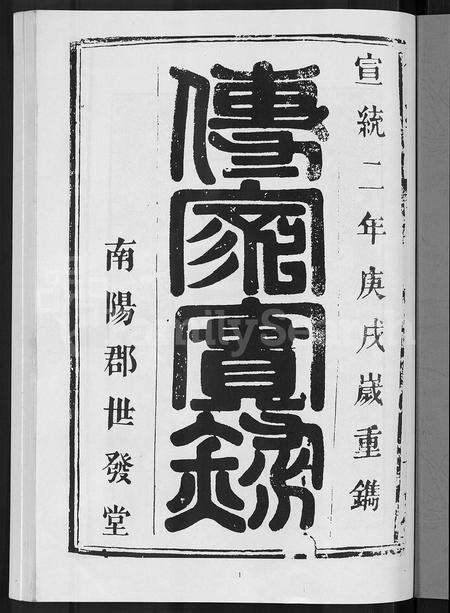 宣統二年庚戌歲重鐫
傳家寶錄
南陽郡世發堂
FamilySearch
1